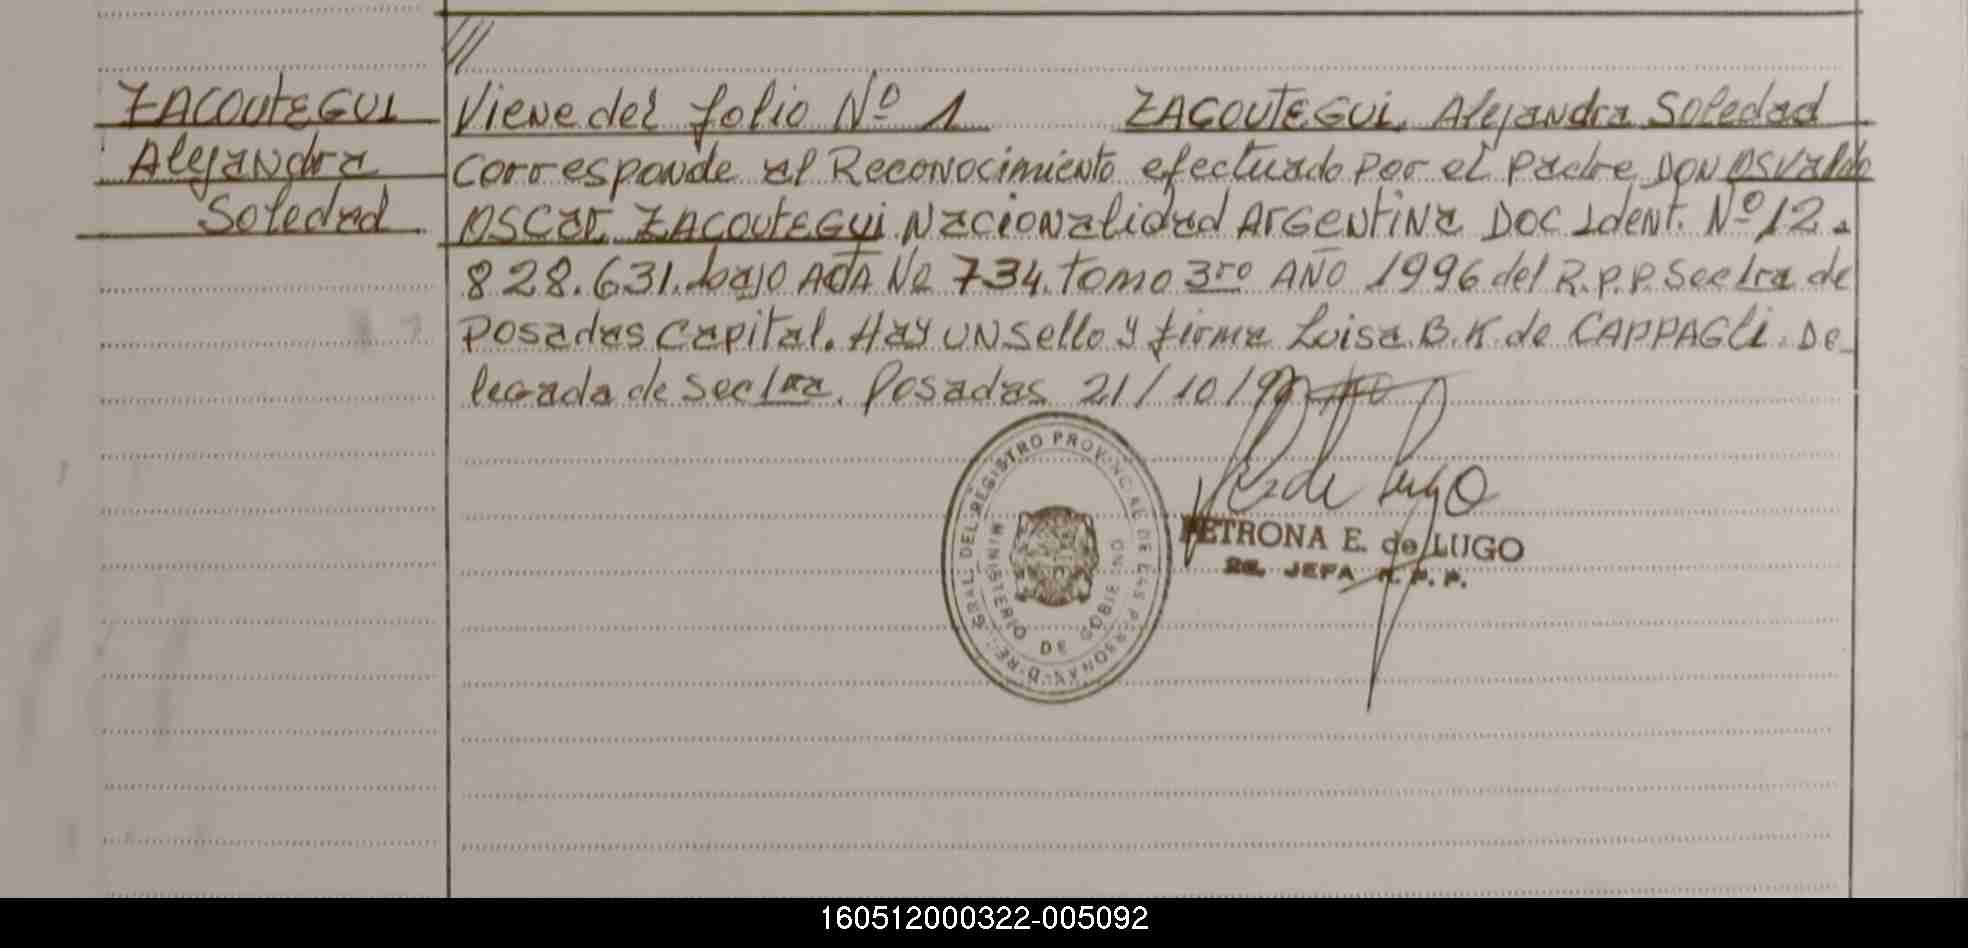 ZACOUTEGUI
Alejandra
Soledad
Viene del folio Nº 1 ZACOUTEGUI, Alejandra Soledad
corresponde al Reconocimiento efectuado por el padre DON OSVALDO
OSCAR ZACOUTEGUI Nacionalidad ARGENTINA DOC Ident. Nº 12.
828.631. bajo ACTA Nº 734. tomo 3ro AÑO 1996 del R.P.P. Sec 1ra de
Posadas Capital. HAY UN Sello y firma Luisa B.K. de CAPPAGLI. De_
legada de Sec 1ra. Posadas 21/10/
de Lugo
PETRONA E. de LUGO
JEFA R. P. P.
GRAL. DEL REGISTRO PROVINCIAL DE LAS PERSONAS
MINISTERIO DE GOBIERNO
160512000322-005092